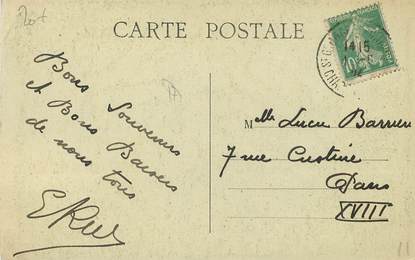 CARTE POSTALE
Bons Souvenirs
et Bons Baisers
de nous tous
Mlle Lucie Barrier
7 rue Custine
Paris
XVIII